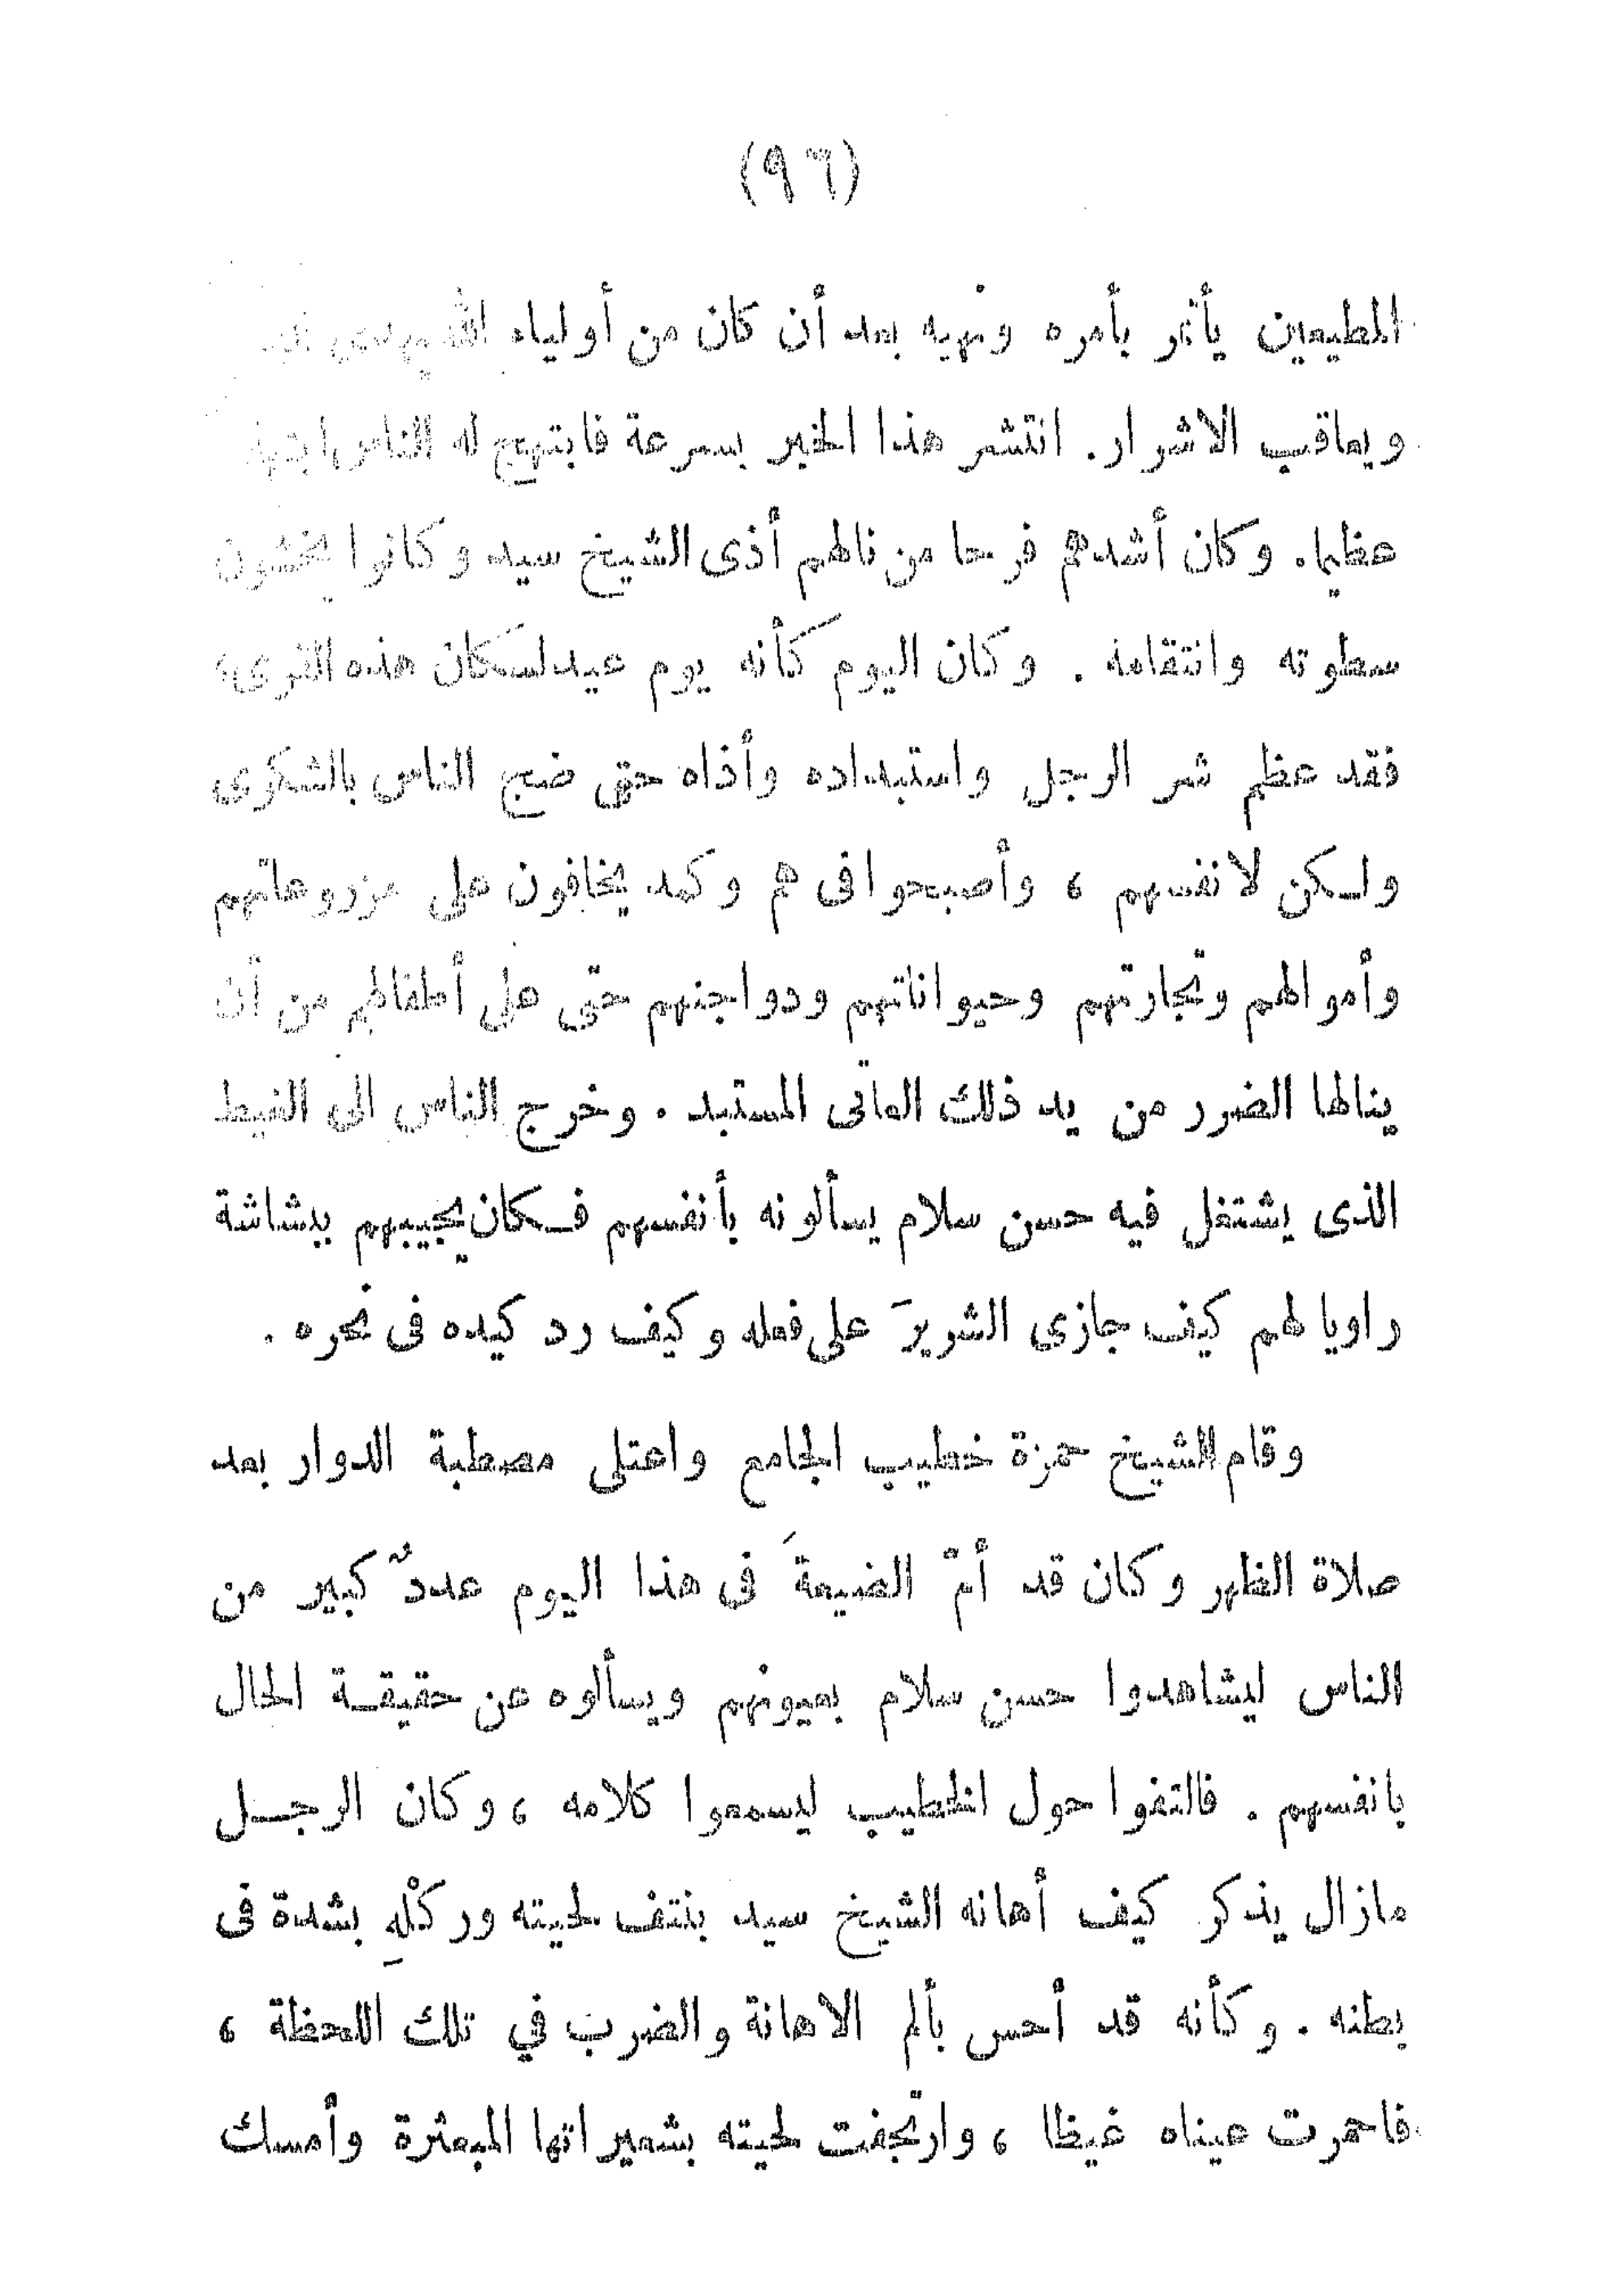 (٩٦)
المطيعين يأتمر بأمره ونهيه بعد أن كان من أولياء الله
ويعاقب الاشرار. انتشر هذا الخبر بسرعة فابتهج له الناس
عظيما. وكان أشدهم فرحا من نالهم أذى الشيخ سيد وكانوا يخشون
سطوته وانتقامه. وكان اليوم كأنه يوم عيد لسكان هذه القرى،
فقد عظم شر الرجل واستبداده وأذاه حتى ضج الناس بالشكوى
ولكن لانفسهم، وأصبحوا فى هم وكمد يخافون على مزروعاتهم
وأموالهم وتجارتهم وحيواناتهم ودواجنهم حتى على أطفالهم من أن
ينالها الضرر من يد ذلك العاتى المستبد. وخرج الناس الى الغيط
الذى يشتغل فيه حسن سلام يسألونه بأنفسهم فكان يجيبهم ببشاشة
راويا لهم كيف جازى الشريرَ على فعله وكيف رد كيده فى نحره.
وقام الشيخ حمزة خطيب الجامع واعتلى مصطبة الدوار بعد
صلاة الظهر وكان قد أمّ الضيعةَ فى هذا اليوم عددٌ كبير من
الناس ليشاهدوا حسن سلام بعيونهم ويسألوه عن حقيقة الحال
بانفسهم. فالتفوا حول الخطيب ليسمعوا كلامه، وكان الرجل
مازال يذكر كيف أهانه الشيخ سيد بنتف لحيته وركْلهِ بشدة فى
بطنه. وكأنه قد أحس بألم الاهانة والضرب في تلك اللحظة،
فاحمرت عيناه غيظا، وارتجفت لحيته بشعيراتها المبعثرة وأمسك